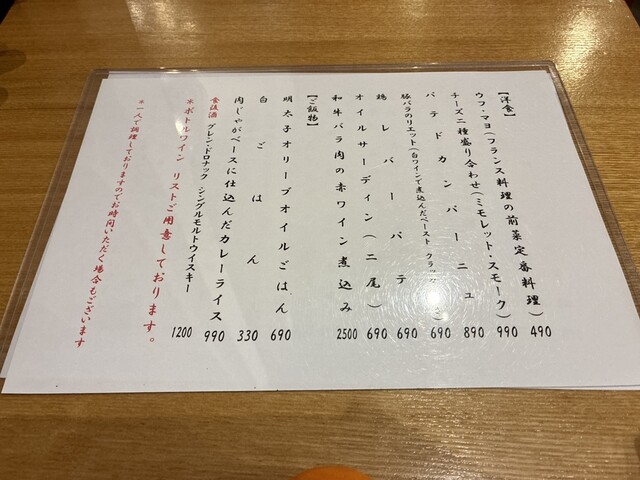 【洋食】
ウフ・マヨ(フランス料理の前菜定番料理) 490
チーズ二種盛り合わせ(ミモレット・スモーク) 990
パテドカンパーニュ 890
豚バラのリエット(白ワインで煮込んだペースト 690
鶏レバーパテ 690
オイルサーディン(二尾) 690
和牛バラ肉の赤ワイン煮込み 2500
【ご飯物】
明太子オリーブオイルごはん 690
白ごはん 330
肉じゃがベースに仕込んだカレーライス 990
食後酒 グレンドロナック シングルモルトウイスキー 1200
※ボトルワイン リストご用意しております。
※一人で調理しておりますのでお時間いただく場合もございます